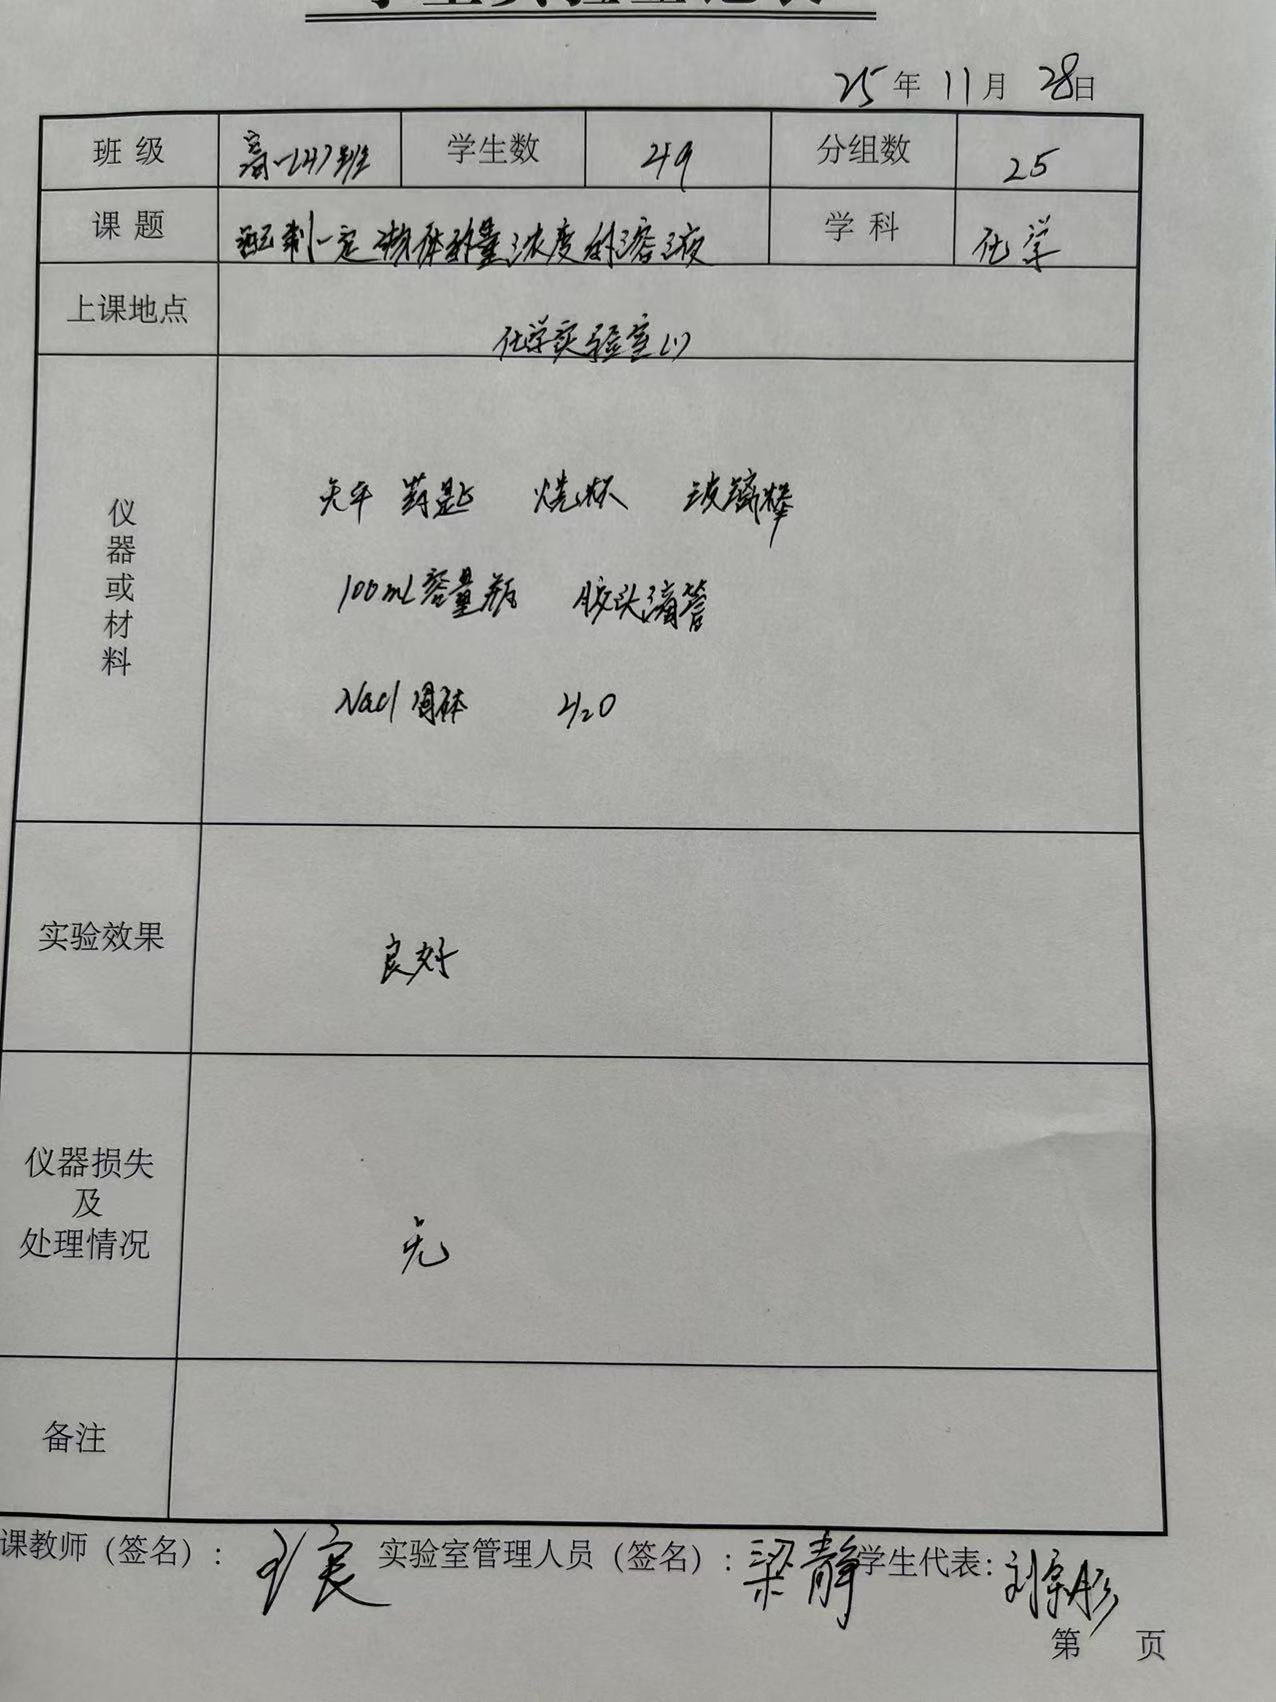 学生实验登记表
25年11月28日
班级 高一247班 学生数 49 分组数 25
课题 配制一定物体积量浓度的溶液 学科 化学
上课地点 化学实验室(1)
仪器或材料
天平 药匙 烧杯 玻璃棒
100mL容量瓶 胶头滴管
NaCl固体 H₂O
实验效果 良好
仪器损失
及
处理情况 无
备注
课教师（签名）： 实验室管理人员（签名）：梁静 学生代表：刘宗彤
第 页